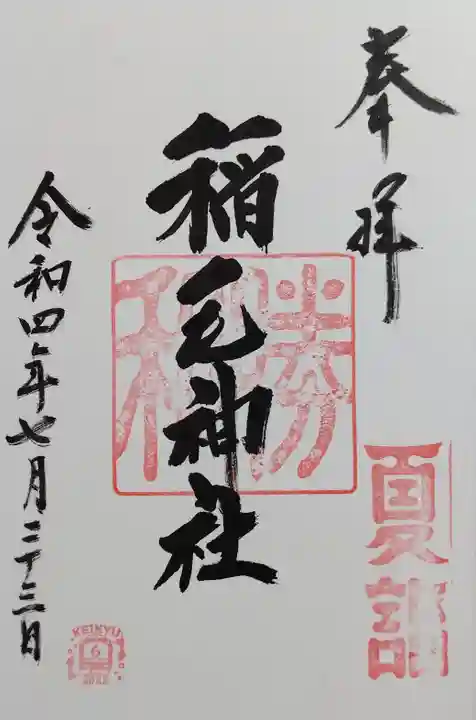 奉拝
稲毛神社
令和四年七月二十三日
夏詣
KEIKYU
6
2022